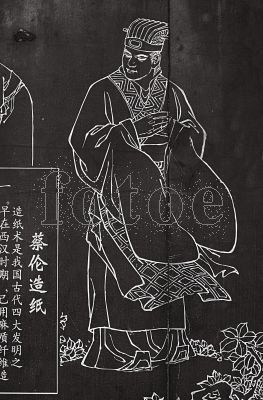 蔡伦造纸
造纸术是我国古代四大发明之
一。早在西汉时期，已用麻质纤维造
fotoe